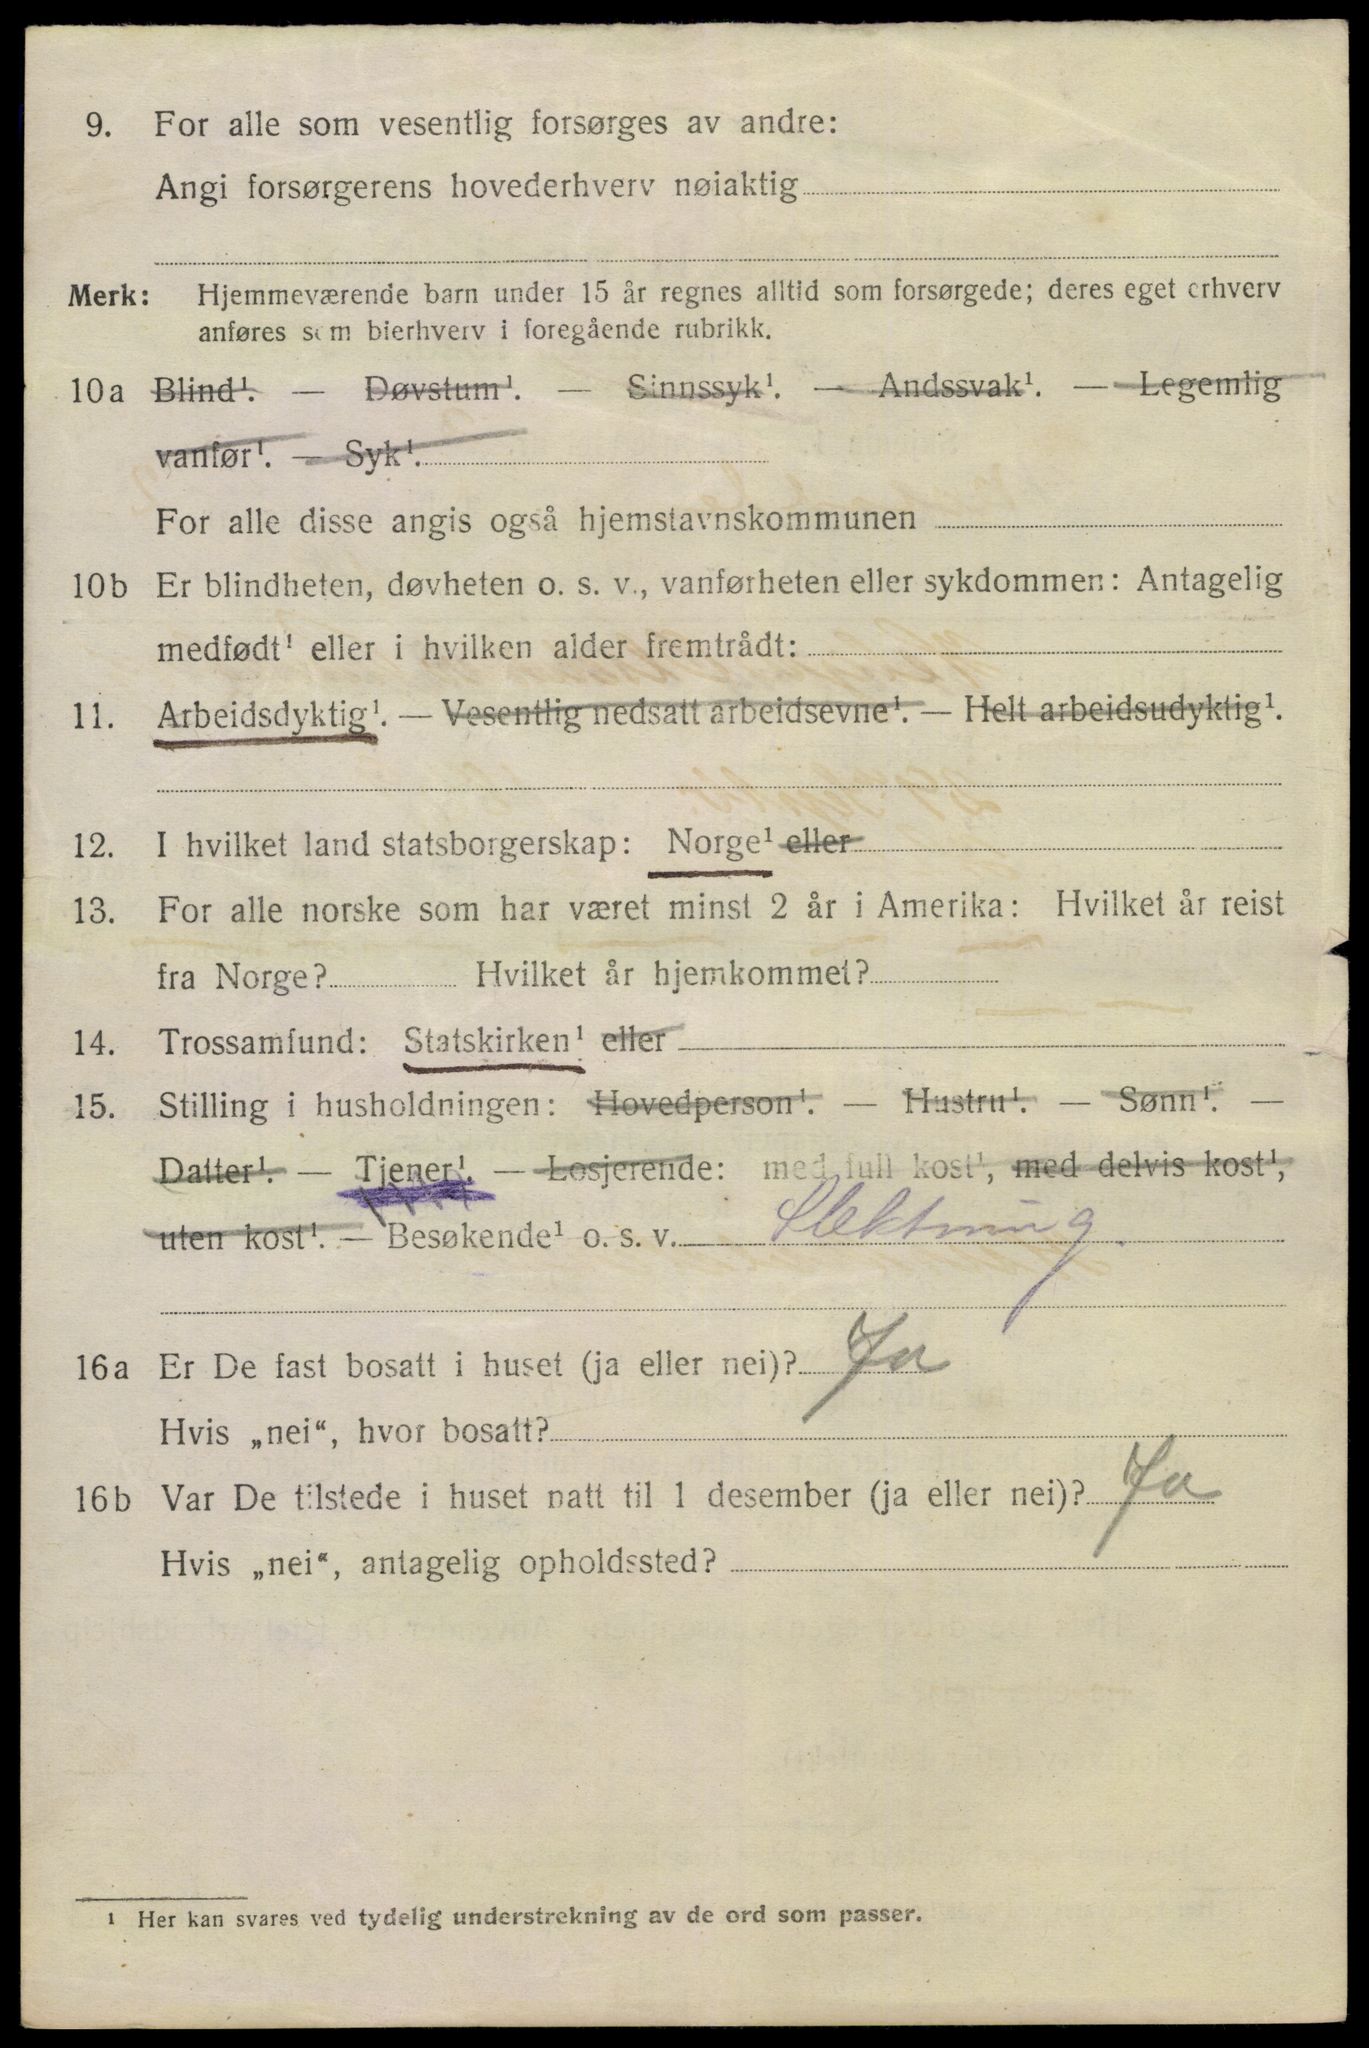 9. For alle som vesentlig forsørges av andre:
Angi forsørgerens hovederhverv nøiaktig
Merk: Hjemmeværende barn under 15 år regnes alltid som forsørgede; deres eget erhverv
anføres som bierhverv i foregående rubrikk.
10a Blind¹. — Døvstum¹. — Sinnssyk¹. — Andssvak¹. — Legemlig
vanfør¹. — Syk¹.
For alle disse angis også hjemstavnskommunen
10b Er blindheten, døvheten o. s. v., vanførheten eller sykdommen: Antagelig
medfødt¹ eller i hvilken alder fremtrådt:
11. Arbeidsdyktig¹. — Vesentlig nedsatt arbeidsevne¹. — Helt arbeidsudyktig¹.
12. I hvilket land statsborgerskap: Norge¹ eller
13. For alle norske som har været minst 2 år i Amerika: Hvilket år reist
fra Norge? Hvilket år hjemkommet?
14. Trossamfund: Statskirken¹ eller
15. Stilling i husholdningen: Hovedperson¹. — Hustru¹. — Sønn¹. —
Datter¹. — Tjener¹. — Losjerende: med full kost¹, med delvis kost¹,
uten kost¹. — Besøkende¹ o. s. v. Slektning.
16a Er De fast bosatt i huset (ja eller nei)? Ja
Hvis „nei“, hvor bosatt?
16b Var De tilstede i huset natt til 1 desember (ja eller nei)? Ja
Hvis „nei“, antagelig opholdssted?
¹ Her kan svares ved tydelig understrekning av de ord som passer.